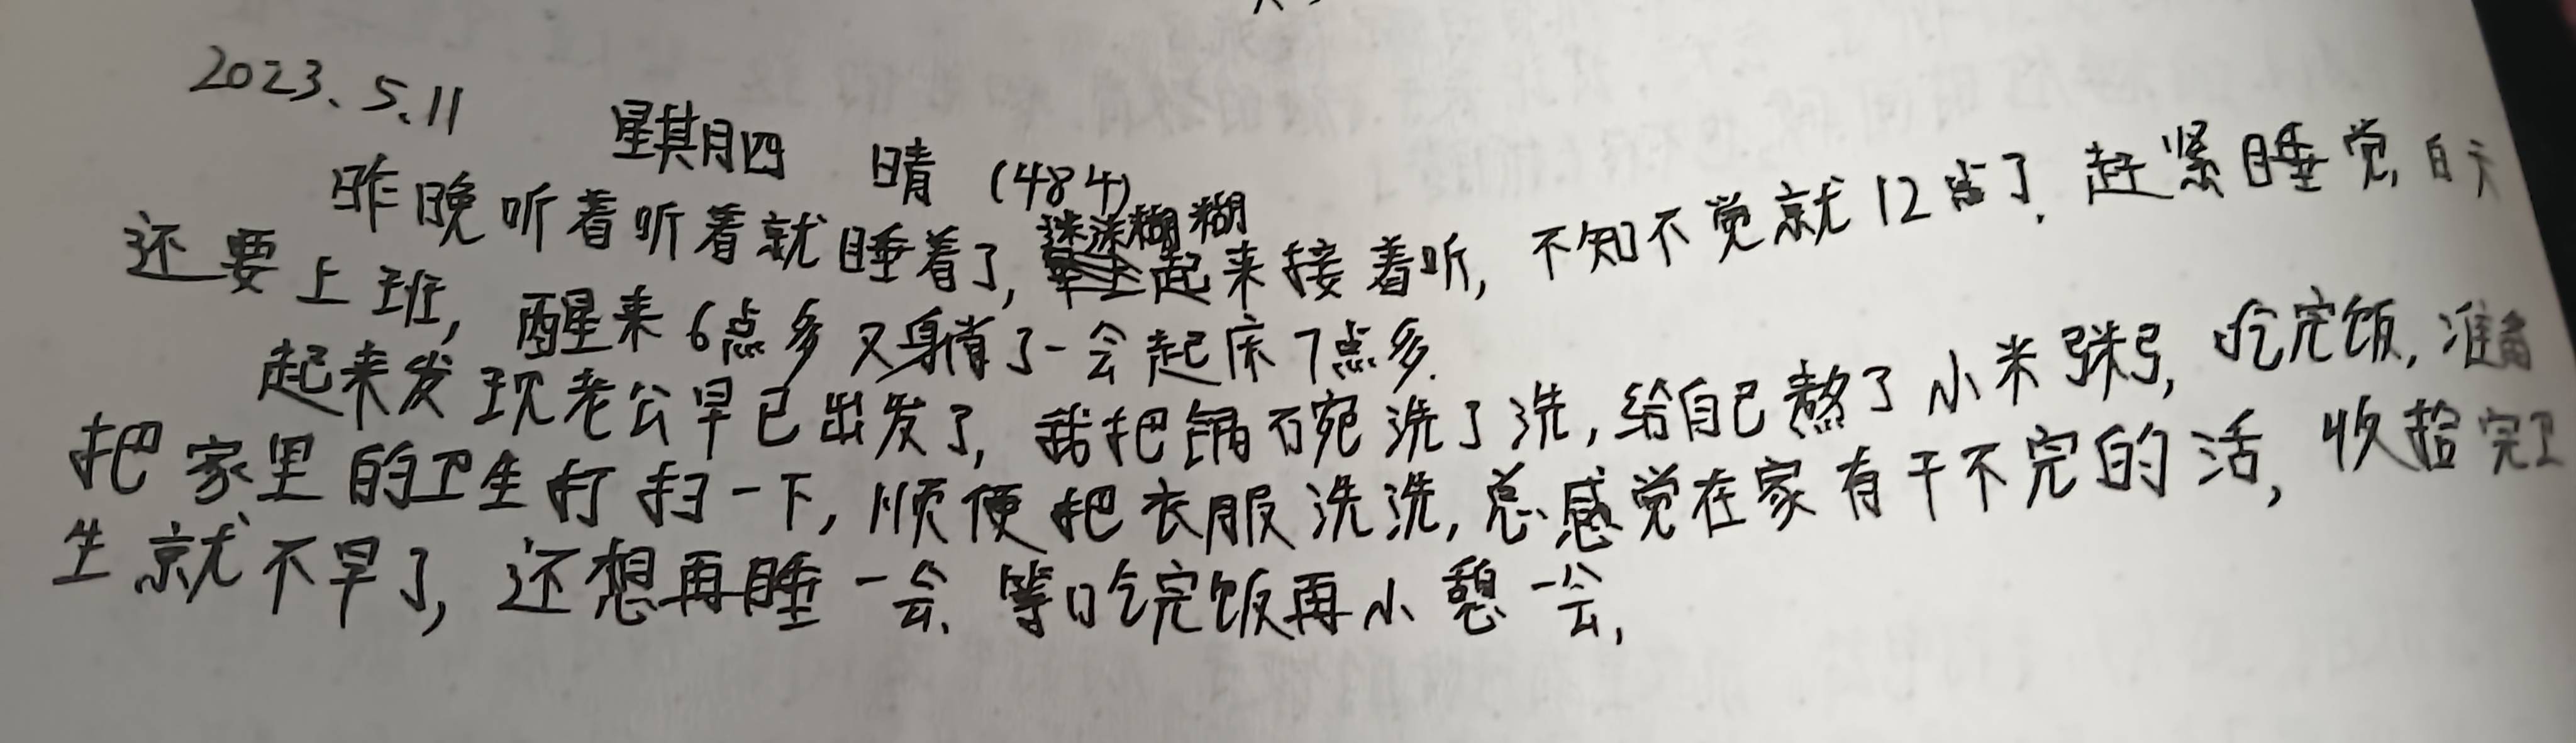 2023、5.11 星期四 晴 (484)
昨晚听着听着就睡着了,迷迷糊糊起来接着听,不知不觉就12点了.赶紧睡觉,白天
还要上班,醒来6点多又躺了一会起床7点多.
起来发现老公早已出发了,我把锅碗洗了洗,给自己熬了小米粥,吃完饭,准备
把家里的卫生打扫一下,顺便把衣服洗洗,总感觉在家有干不完的活,收拾完卫
生就不早了,还想再睡一会、等吃完饭再小憩一会,